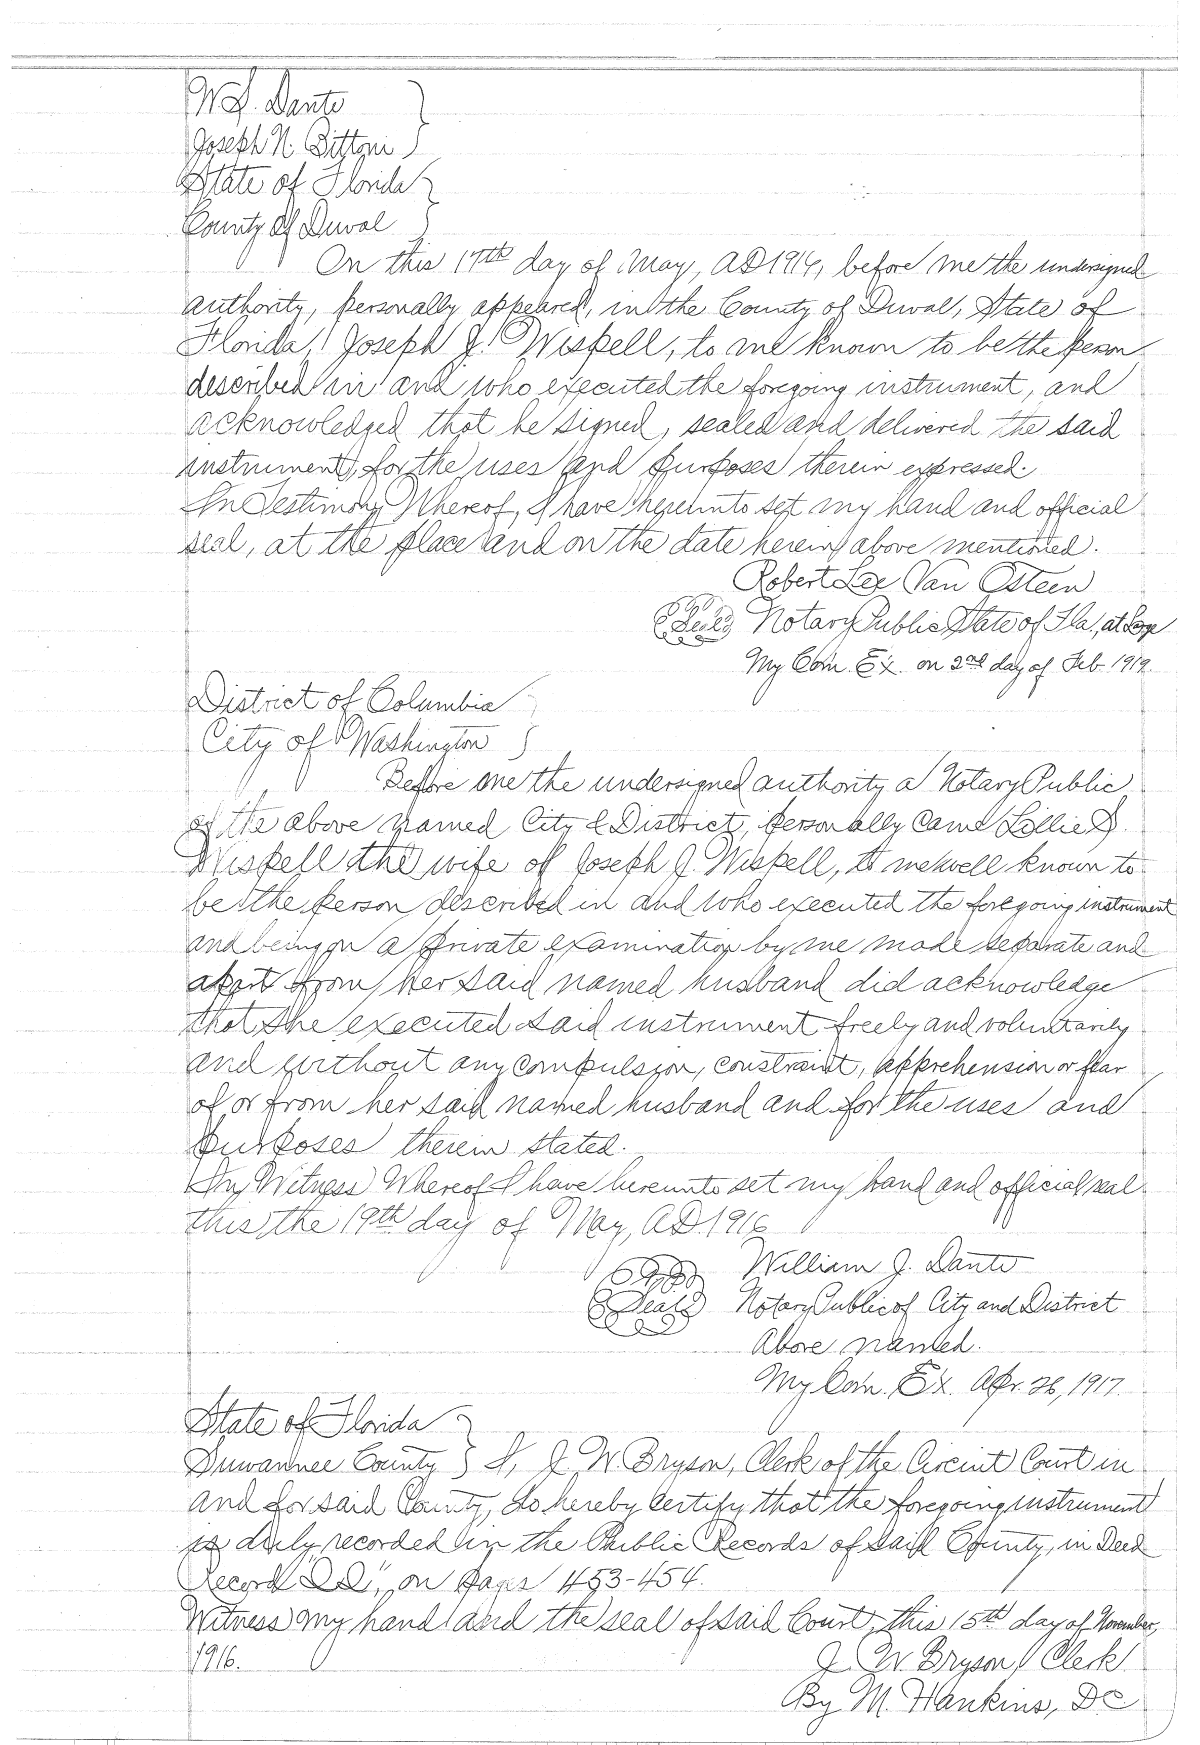 W. J. Dante
Joseph N. Bittoni
State of Florida
County of Duval
On this 17th day of May, AD 1916, before me the undersigned
authority, personally appeared, in the County of Duval, State of
Florida, Joseph J. Wispell, to me known to be the person
described in and who executed the foregoing instrument, and
acknowledged that he signed, sealed and delivered the said
instrument, for the uses and purposes therein expressed.
In Testimony Whereof, I have hereunto set my hand and official
seal, at the place and on the date herein above mentioned.
Robert Lee Van Osteen
(Seal) Notary Public State of Fla, at Large
My Com. Ex. on 2nd day of Feb. 1919.
District of Columbia
City of Washington
Before me the undersigned authority a Notary Public
of the above named City & District, personally came Lillie S.
Wispell the wife of Joseph J. Wispell, to me well known to
be the person described in and who executed the foregoing instrument
and being on a private examination by me made separate and
apart from her said named husband did acknowledge
that she executed said instrument freely and voluntarily
and without any compulsion, constraint, apprehension or fear
of or from her said named husband and for the uses and
purposes therein stated.
In Witness Whereof I have hereunto set my hand and official seal
this the 19th day of May, AD. 1916
William J. Dante
(Seal) Notary Public of City and District
Above named.
My Com. Ex. Apr. 26, 1917.
State of Florida
Suwannee County I, J. W. Bryson, Clerk of the Circuit Court in
and for said County, do hereby certify that the foregoing instrument
is duly recorded in the Public Records of said County, in Deed
Record "DD", on pages 453-454.
Witness my hand and the seal of said Court, this 15th day of November,
1916.
J. W. Bryson, Clerk
By M. Hankins, DC